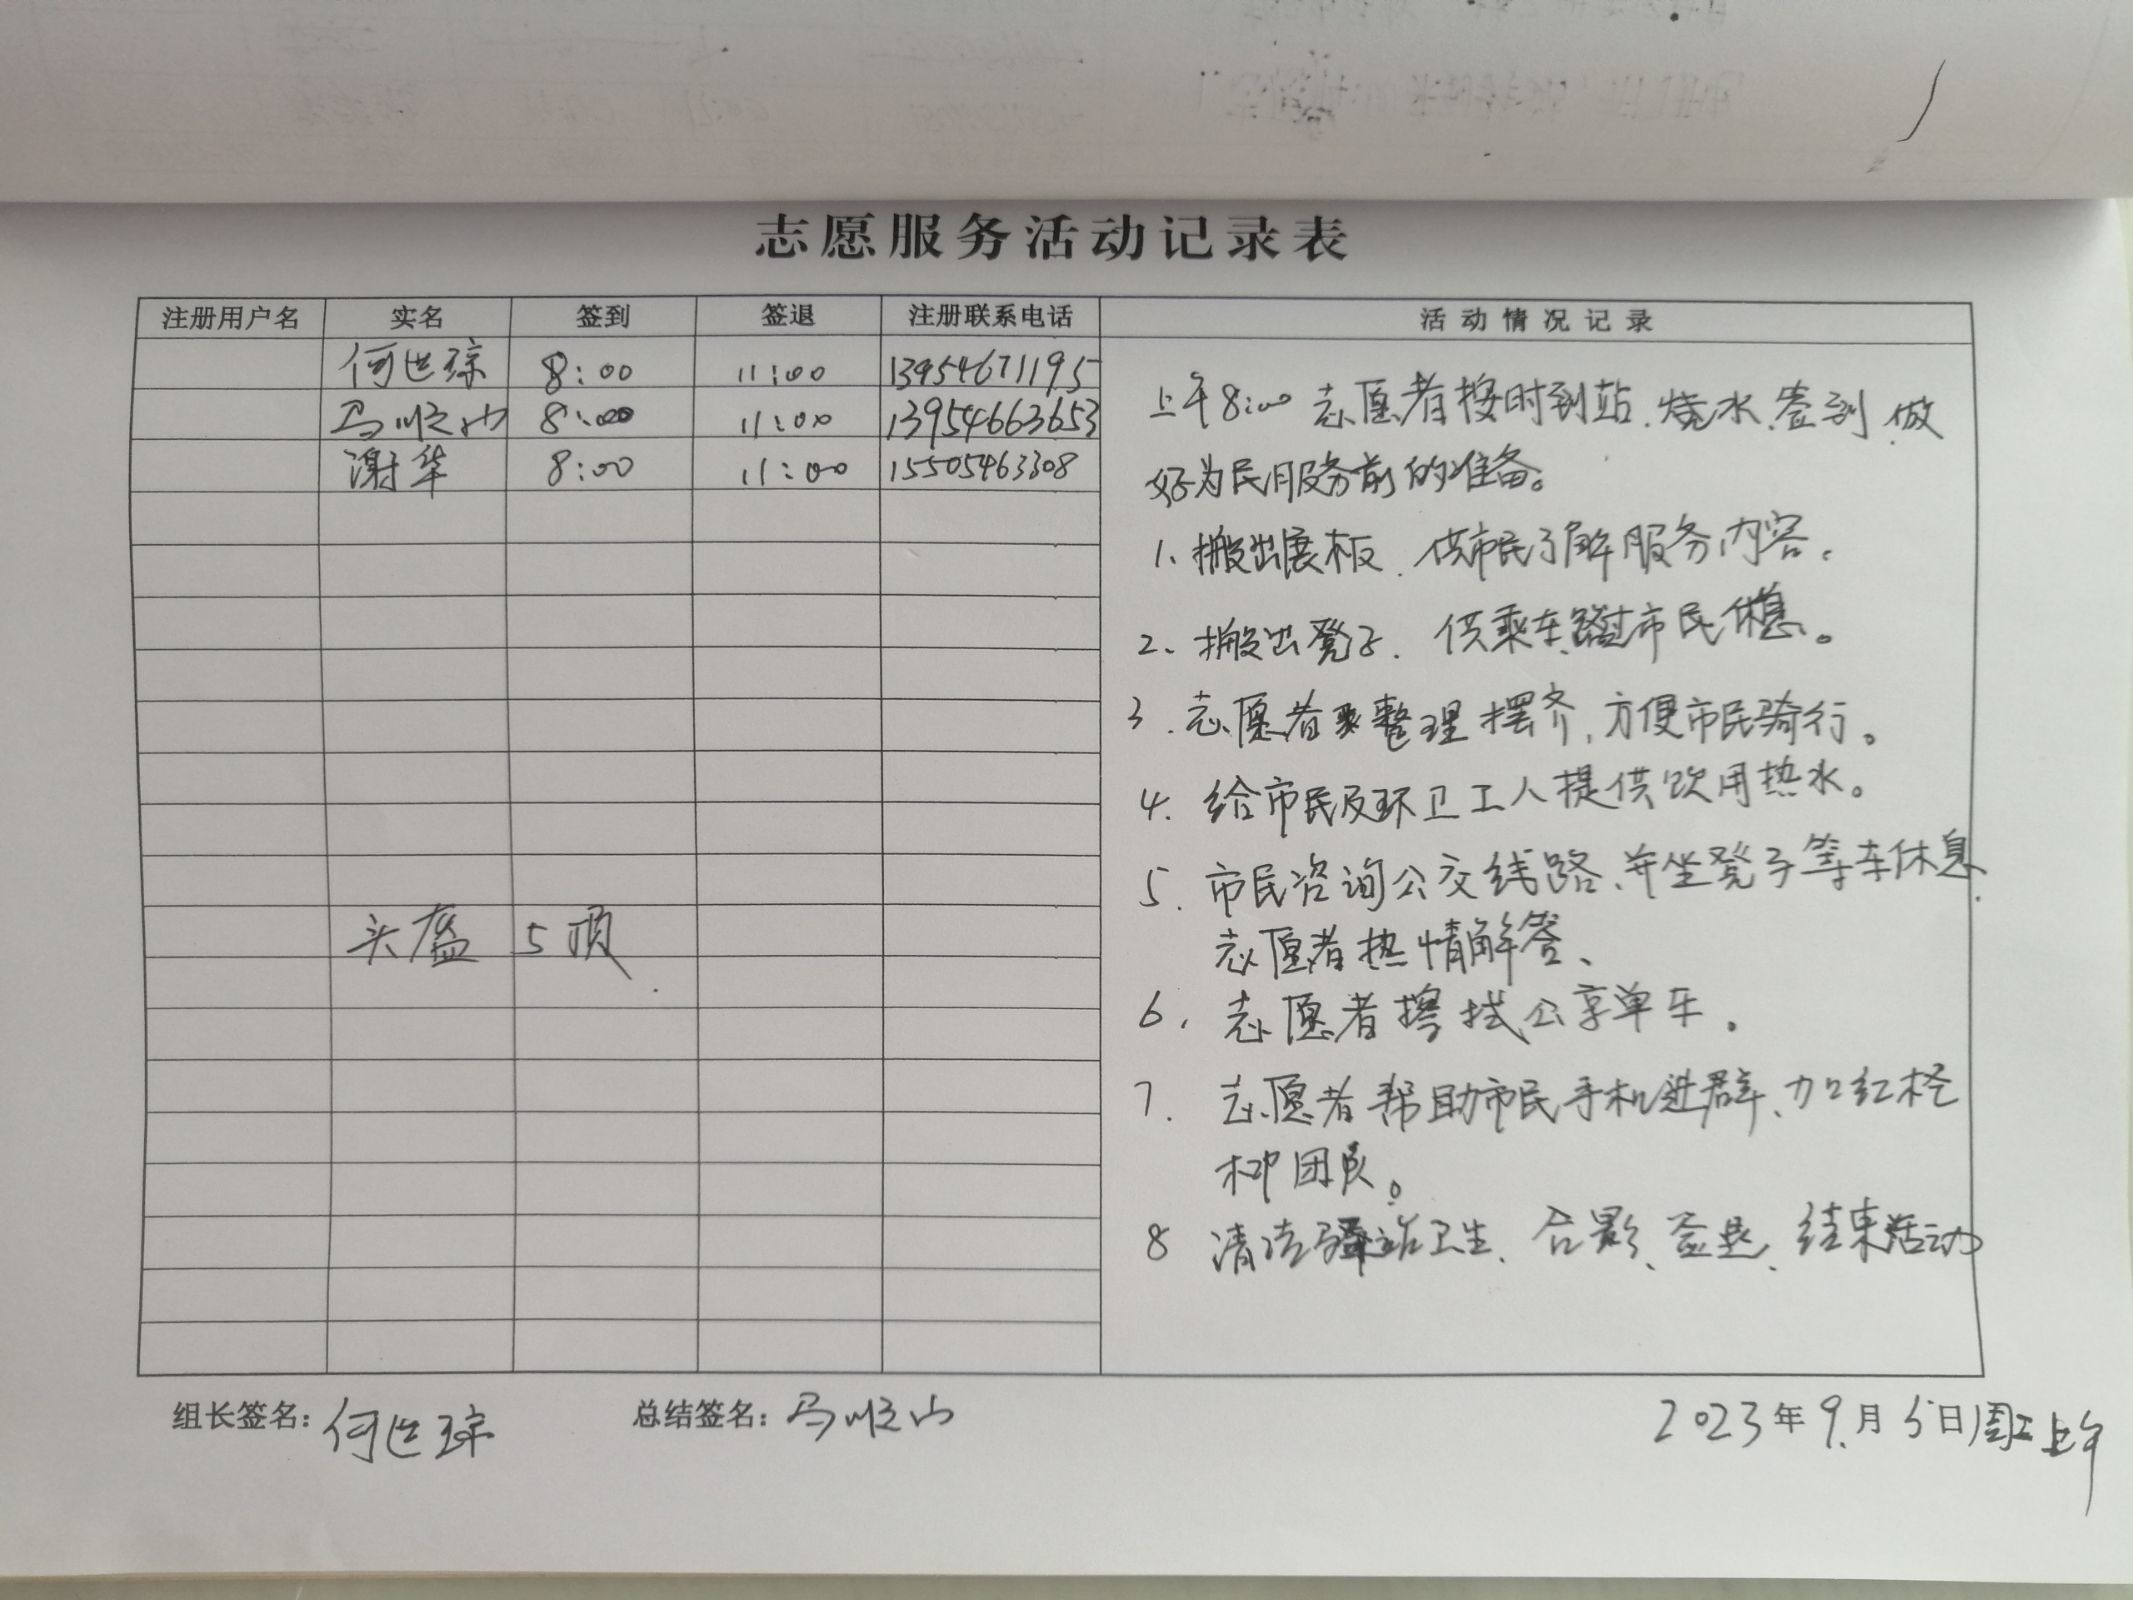 志愿服务活动记录表
注册用户名 实名 签到 签退 注册联系电话 活动情况记录
何世琼 8:00 11:00 13954671195
马顺山 8:00 11:00 13954663653
谢华 8:00 11:00 15505463308
头盔 5顶
上午8:00志愿者按时到站、烧水、签到、做
好为民服务前的准备。
1、搬出展板、供市民了解服务内容。
2、搬出凳子、供乘车路过市民休息。
3、志愿者整理摆齐,方便市民骑行。
4、给市民及环卫工人提供饮用热水。
5、市民咨询公交线路、并坐凳子等车休息、
志愿者热情解答、
6、志愿者擦拭公享单车。
7、志愿者帮助市民手机进群、加红柽
柳团队。
8 清洁驿站卫生、合影、签退、结束活动
组长签名:何世琼 总结签名:马顺山 2023年9月5日周二上午